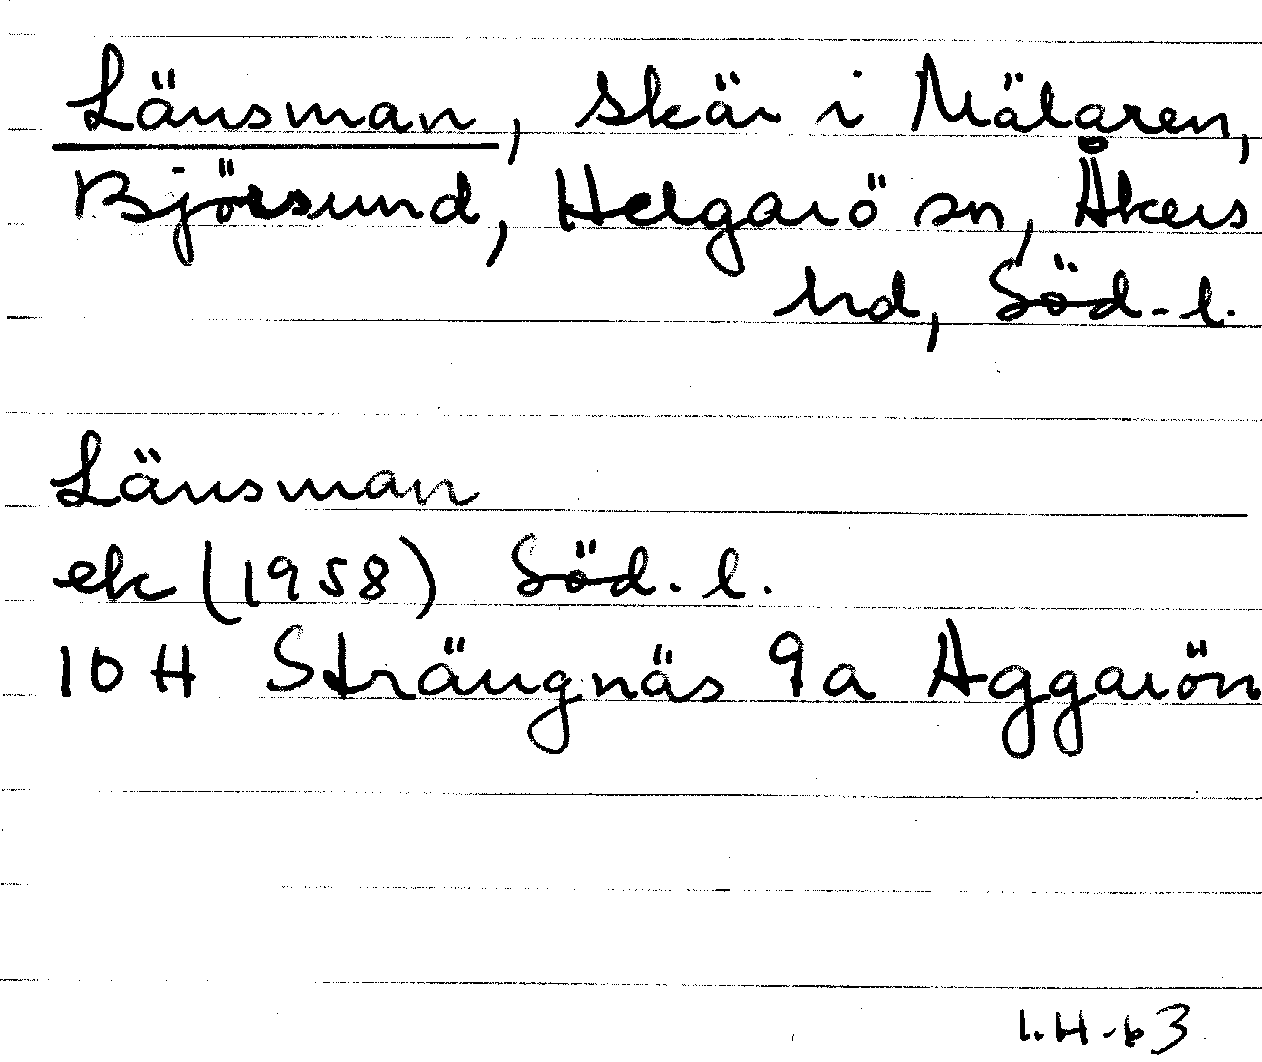 Länsman, skär i Mälaren,
Björsund, Helgarö sn, Åkers
hd, Söd. l.
Länsman
ek (1958) Söd. l.
10 H Strängnäs 9a Aggarön
I.H-63